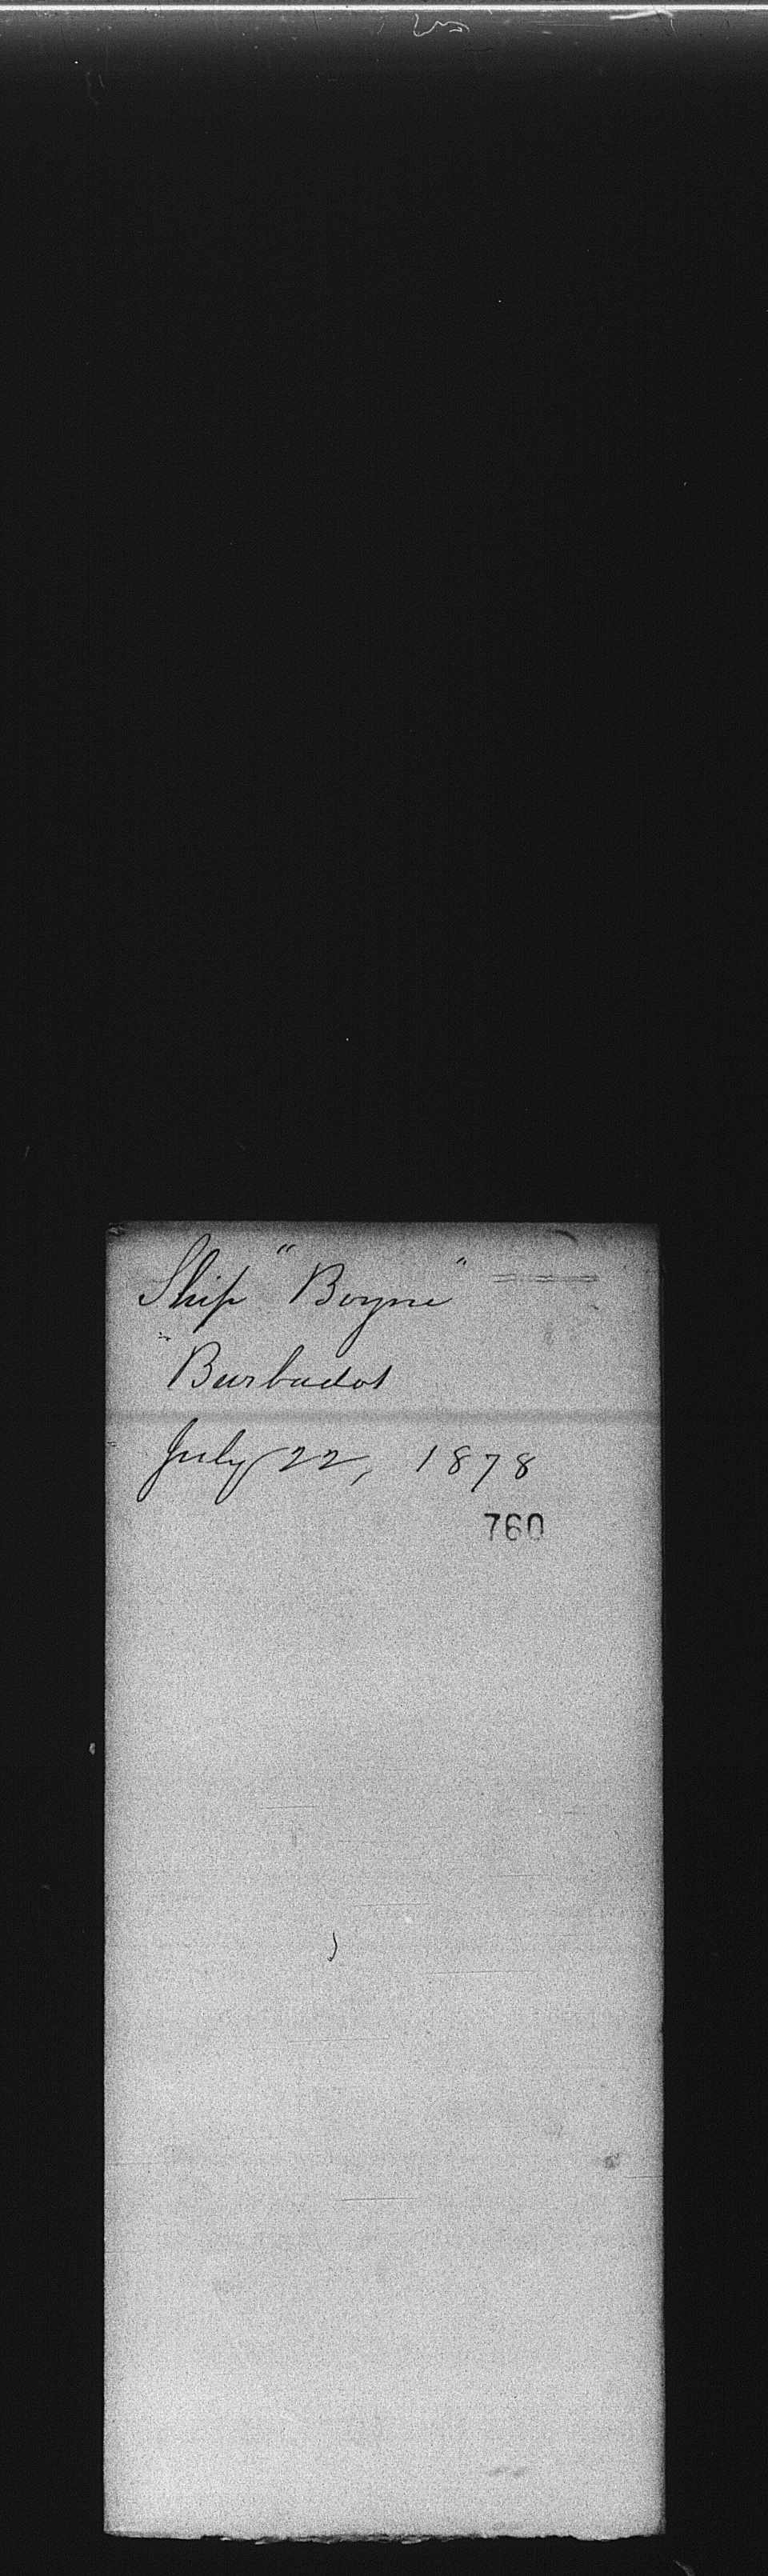 Ship "Boyne"
Barbados
July 22, 1878
760